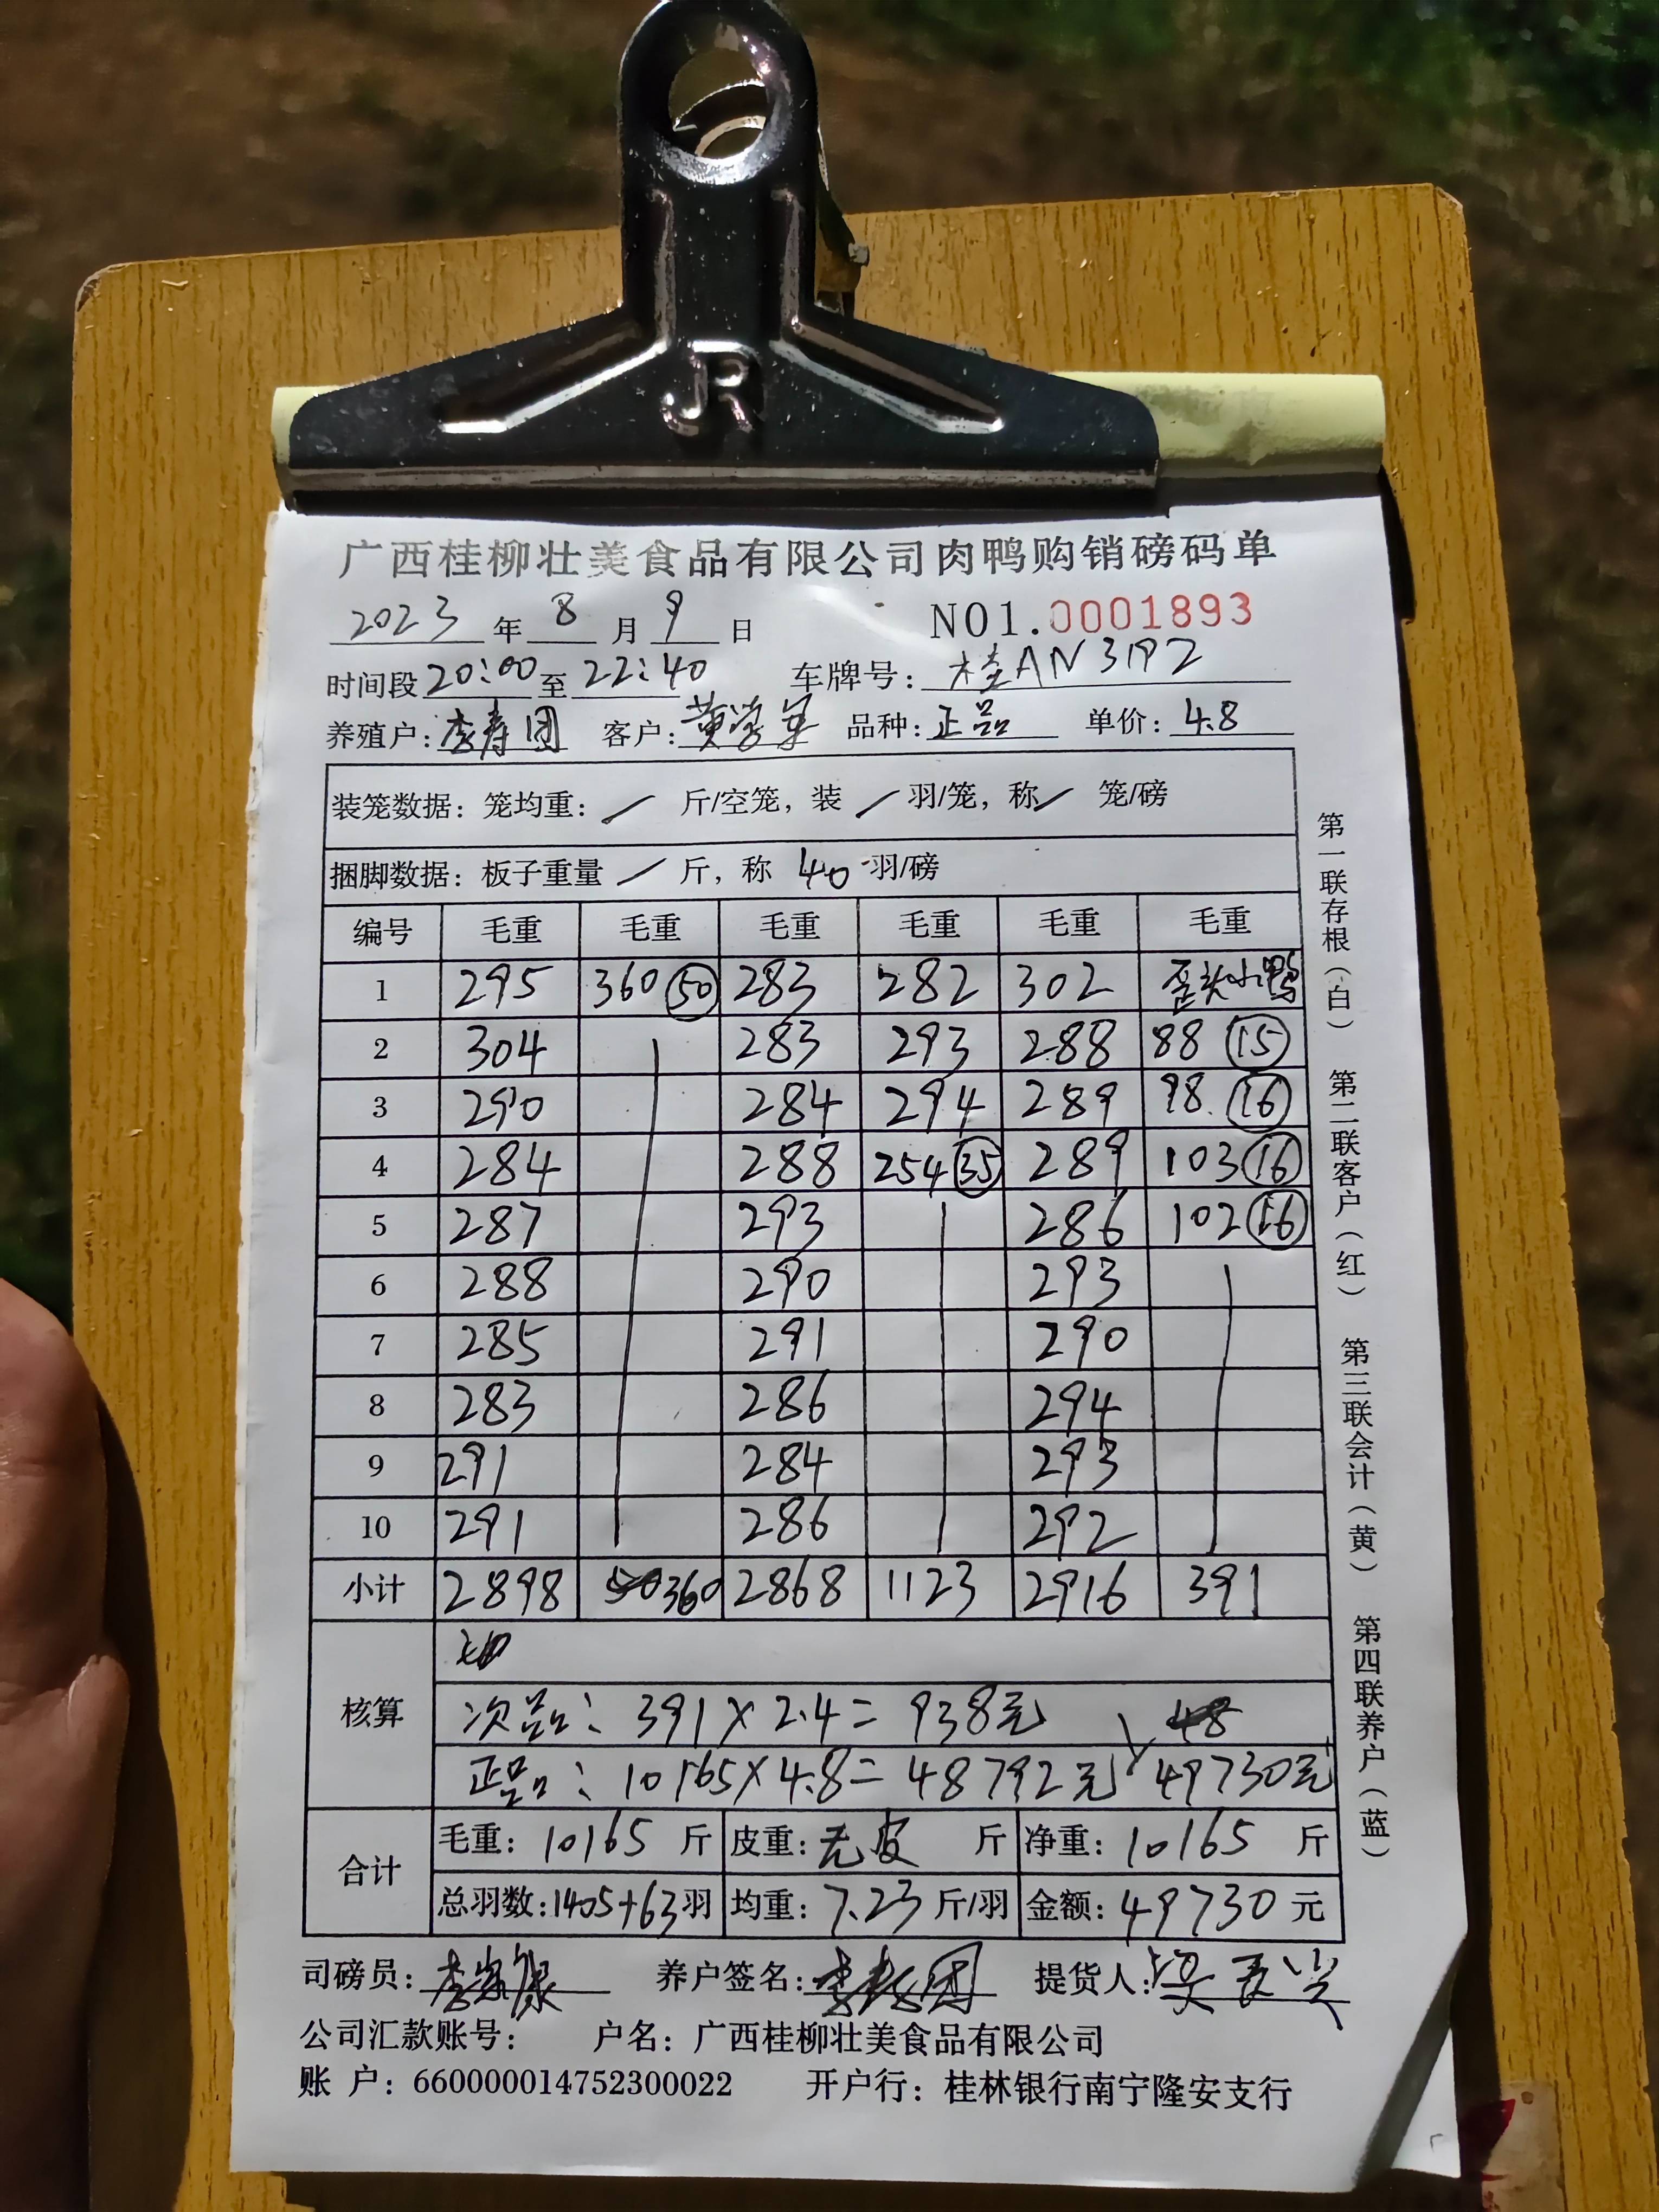 JR
广西桂柳壮美食品有限公司肉鸭购销磅码单
2023 年 8 月 9 日 NO1.0001893
时间段 20:00 至 22:40 车牌号: 桂AN3192
养殖户: 李寿团 客户: 黄学军 品种: 正品 单价: 4.8
装笼数据: 笼均重: / 斤/空笼, 装 / 羽/笼, 称 / 笼/磅
捆脚数据: 板子重量 / 斤, 称 40 羽/磅
编号 毛重 毛重 毛重 毛重 毛重 毛重
1 295 360 50 283 282 302 歪头小鸭
2 304 283 293 288 88 15
3 290 284 294 289 98 16
4 284 288 254 35 289 103 16
5 287 293 286 102 16
6 288 290 293
7 285 291 290
8 283 286 294
9 291 284 293
10 291 286 292
小计 2898 360 2868 1123 2916 391
核算
次品: 391×2.4=938元
正品: 10165×4.8=48792元 49730元
合计
毛重: 10165 斤 皮重: 无皮 斤 净重: 10165 斤
总羽数: 1405+63 羽 均重: 7.23 斤/羽 金额: 49730 元
司磅员: 养户签名: 提货人:
公司汇款账号: 户名: 广西桂柳壮美食品有限公司
账 户: 660000014752300022 开户行: 桂林银行南宁隆安支行
第一联存根(白) 第二联客户(红) 第三联会计(黄) 第四联养户(蓝)